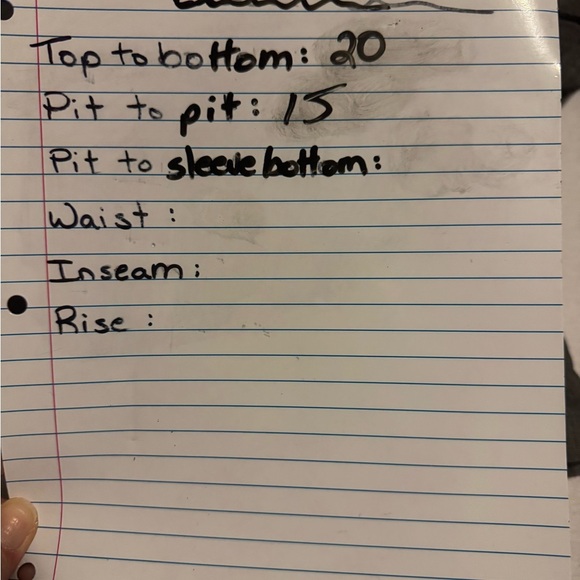 Top to bottom: 20
Pit to pit: 15
Pit to sleeve bottom:
Waist :
Inseam :
Rise :